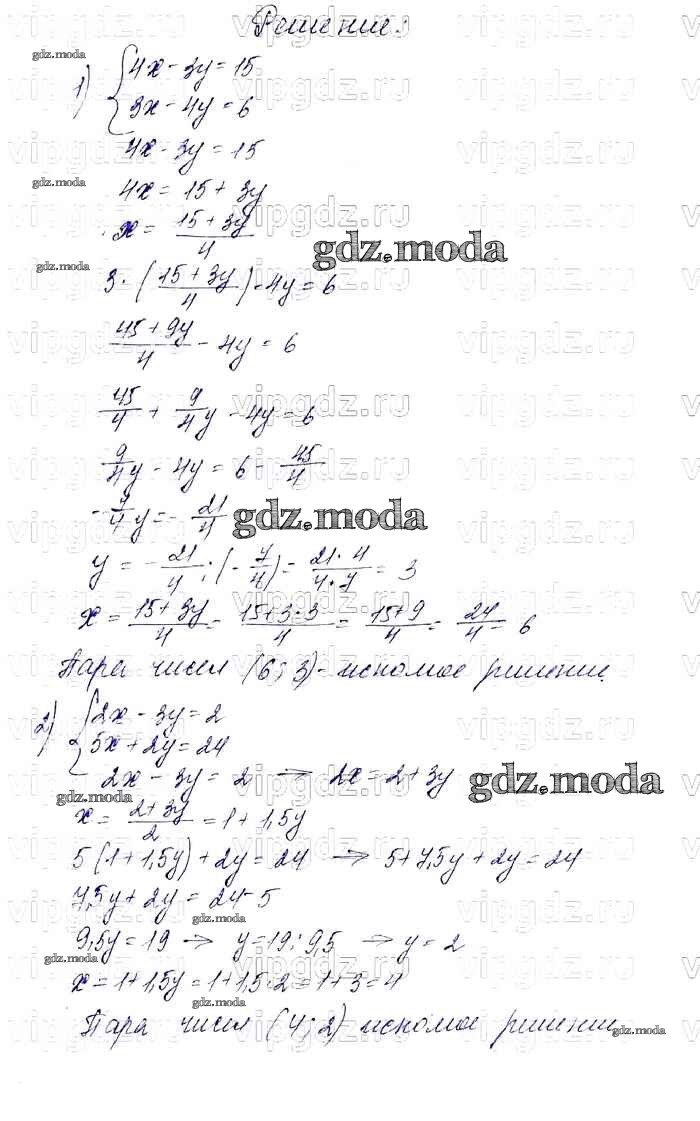 Решение:
gdz.moda
1) { 4x - 3y = 15
3x - 4y = 6
4x - 3y = 15
gdz.moda
4x = 15 + 3y
x = (15 + 3y)/4
gdz.moda
gdz.moda
3·((15 + 3y)/4) - 4y = 6
(45 + 9y)/4 - 4y = 6
45/4 + 9/4y - 4y = 6
9/4y - 4y = 6 - 45/4
-7/4y = -21/4
gdz.moda
y = -21/4 : (-7/4) = (21·4)/(4·7) = 3
x = (15 + 3y)/4 = (15 + 3·3)/4 = (15 + 9)/4 = 24/4 = 6
Пара чисел (6; 3) - искомое решение.
2) { 2x - 3y = 2
5x + 2y = 24
2x - 3y = 2 → 2x = 2 + 3y
gdz.moda
gdz.moda
x = (2 + 3y)/2 = 1 + 1,5y
5(1 + 1,5y) + 2y = 24 → 5 + 7,5y + 2y = 24
7,5y + 2y = 24 - 5
gdz.moda
9,5y = 19 → y = 19 : 9,5 → y = 2
gdz.moda
x = 1 + 1,5y = 1 + 1,5·2 = 1 + 3 = 4
gdz.moda
Пара чисел (4; 2) искомое решение
gdz.moda
vipgdz.ru